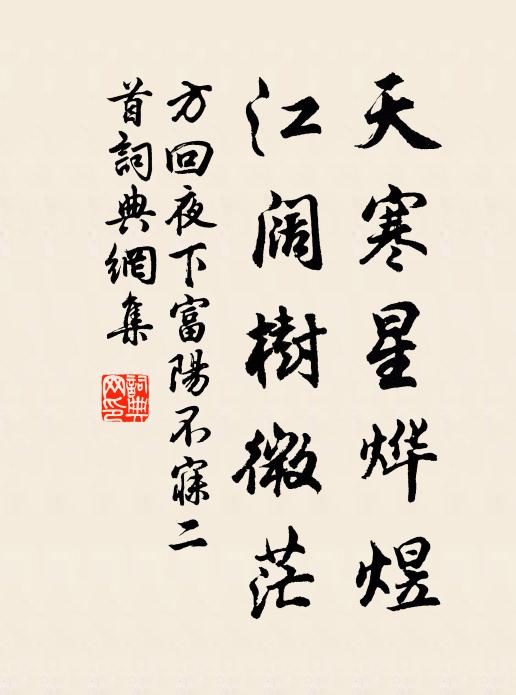 天寒星烨煜
江阔樹微茫
方回夜下富陽不寐二
首詞典網集
詞典
网印